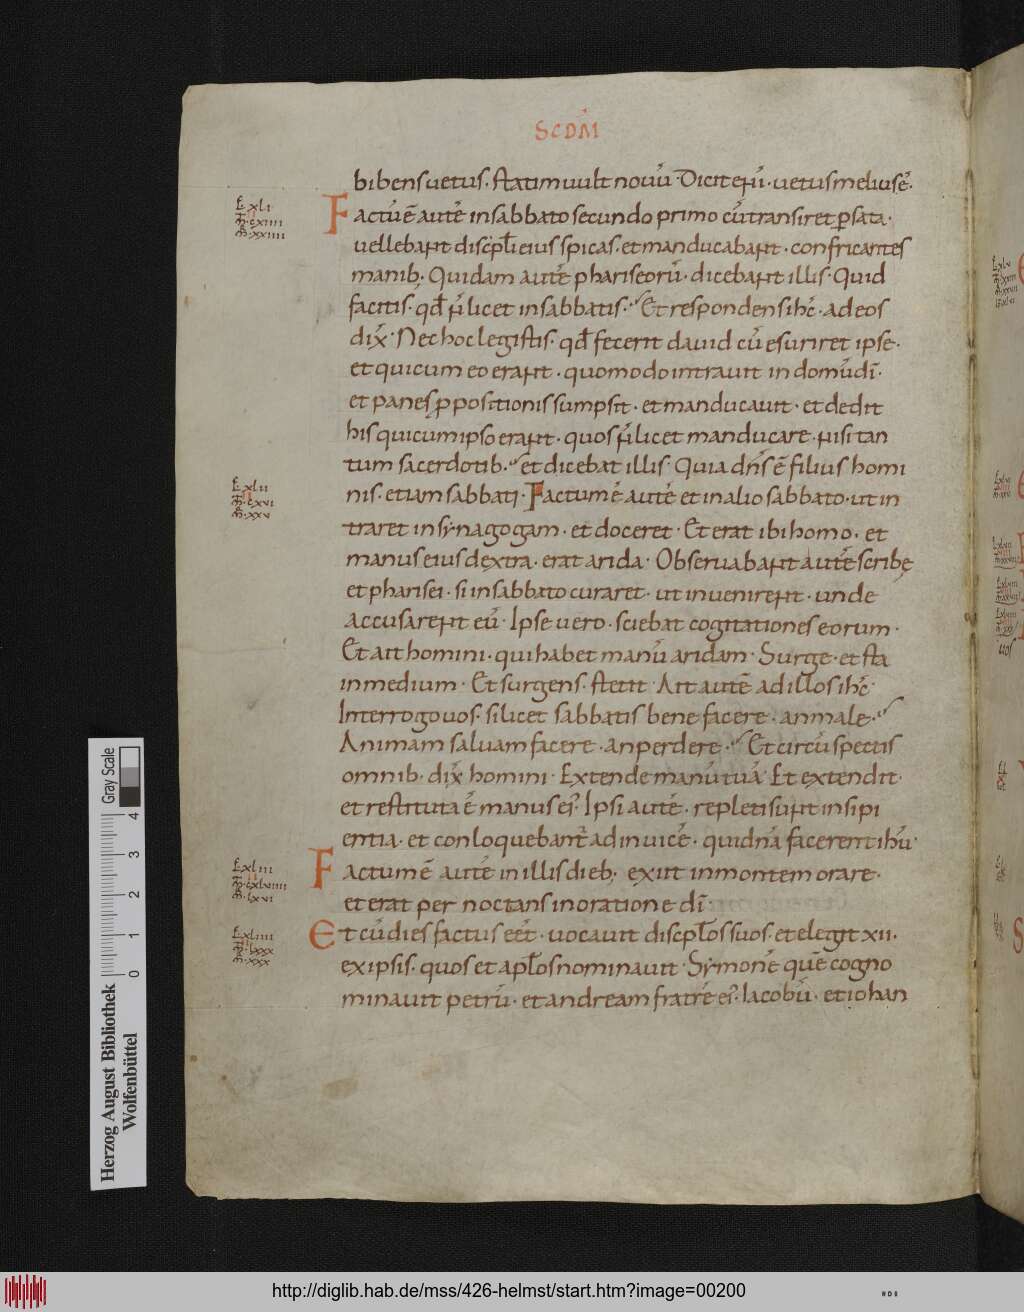 SCDM̄
bibens uetus · statim uult nouū · Dicit enī · uetus melius ē ·
L xli
Factū ē autē in sabbato secundo primo cū transiret p sata ·
M · cxiiii
M · xxiiii
uellebant discipl̄i eius spicas · et manducabant · confricantes
manib; · Quidam autē phariseorū · dicebant illis · Quid
facitis · qd̄ n̄ licet in sabbatis · Et respondens ihc̄ · ad eos
dix̄ · Nec hoc legistis · qd̄ fecerit dauid cū esuriret ipse ·
et qui cum eo erant · quomodo intrauit in domū dī ·
et panes ppositionis sumpsit · et manducauit · et dedit
his qui cum ipso erant · quos n̄ licet manducare · nisi tan
tum sacerdotib · et dicebat illis · Quia dn̄s ē filius homi
L xlii
nis · etiam sabbati · Factum ē autē et in alio sabbato · ut in
M · cxvi
M · xxv
traret in synagogam · et doceret · Et erat ibi homo · et
manus eius dextra · erat arida · Obseruabant autē scribę
et pharisei · si in sabbato curaret · ut inuenirent · unde
accusarent eū · Ipse uero · sciebat cogitationes eorum ·
Et ait homini · qui habet manū aridam · Surge · et sta
in medium · Et surgens · stetit · Ait autē ad illos ihc̄ ·
Interrogo uos · si licet sabbatis bene facere · an male ·
Animam saluam facere · an perdere · Et circū spectis
omnib · dix̄ homini · Extende manū tuā · Et extendit ·
et restituta ē manus eī · Ipsi autē · repleti sunt insipi
entia · et conloquebant̄ ad inuicē · quidnā facerent ihū ·
L xliii
Factum ē autē in illis dieb; exiit in montem orare ·
M · cxlviiii
M · lxvi
et erat per noctans in oratione dī ·
L xliiii
Et cū dies factus eēt · uocauit discipl̄os suos · et elegit xii ·
M · lxxx
M · xxx
ex ipsis · quos et apl̄os nominauit · Symonē quē cogno
minauit petrū · et andream fratrē eī · Iacobū · et iohan
Gray Scale
0 1 2 3 4
Herzog August Bibliothek
Wolfenbüttel
http://diglib.hab.de/mss/426-helmst/start.htm?image=00200